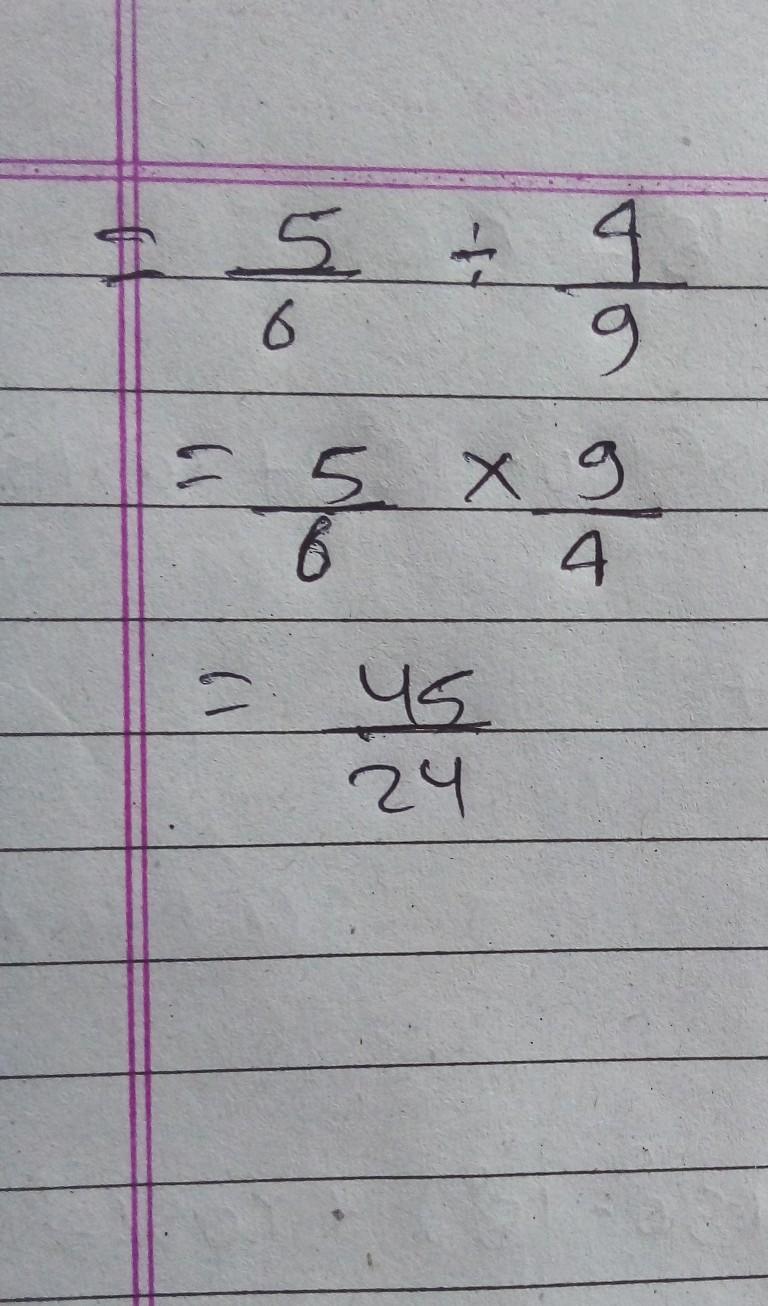 = 5/6 ÷ 4/9
= 5/6 × 9/4
= 45/24